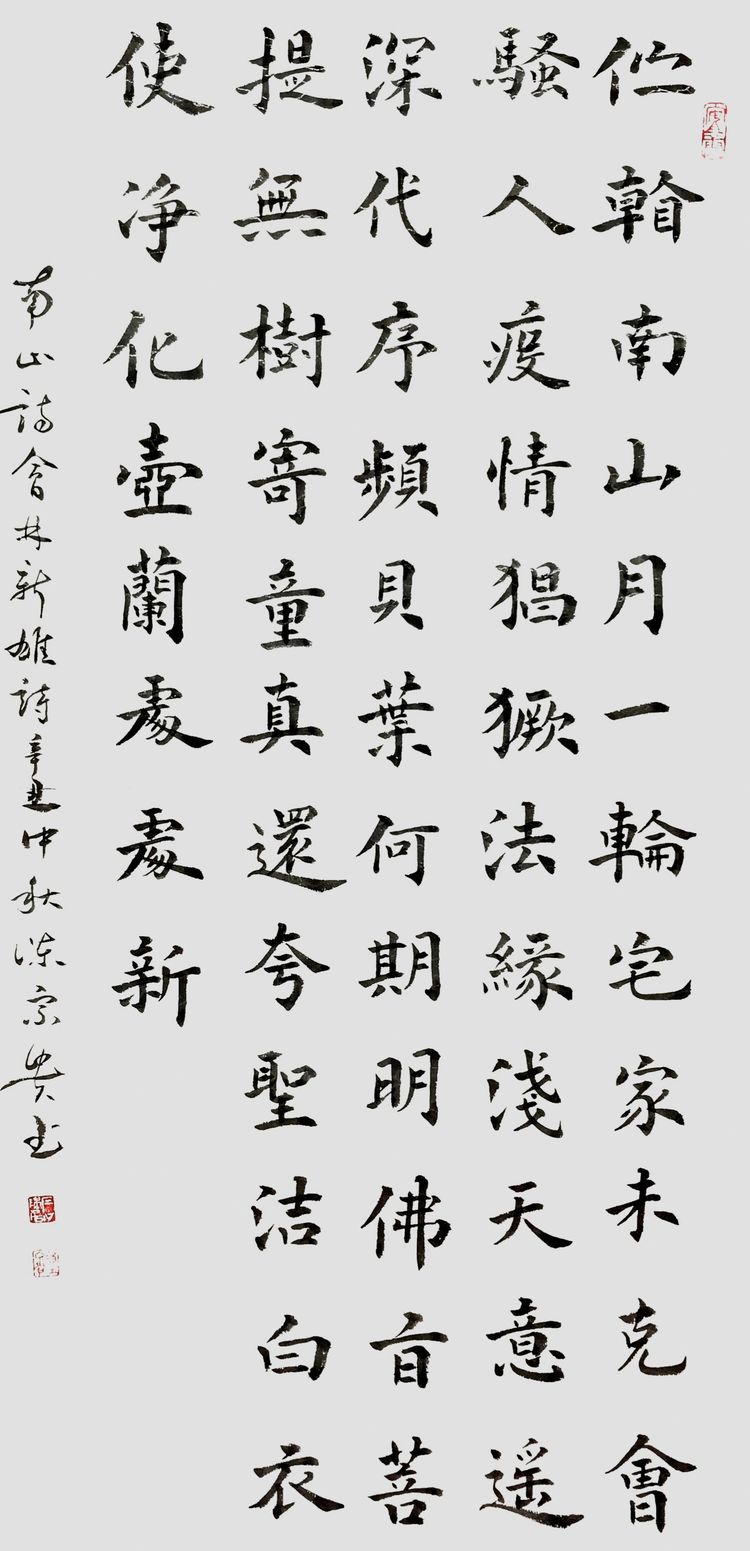 南山月一輪宅家未克會
騷人疫情猖獗法緣淺天意遥
深代序頻貝葉何期明佛旨菩
提無樹寄童真還夸聖洁白衣
使净化壺蘭處處新
南山詩會林新雄詩辛丑中秋陳宗貴书